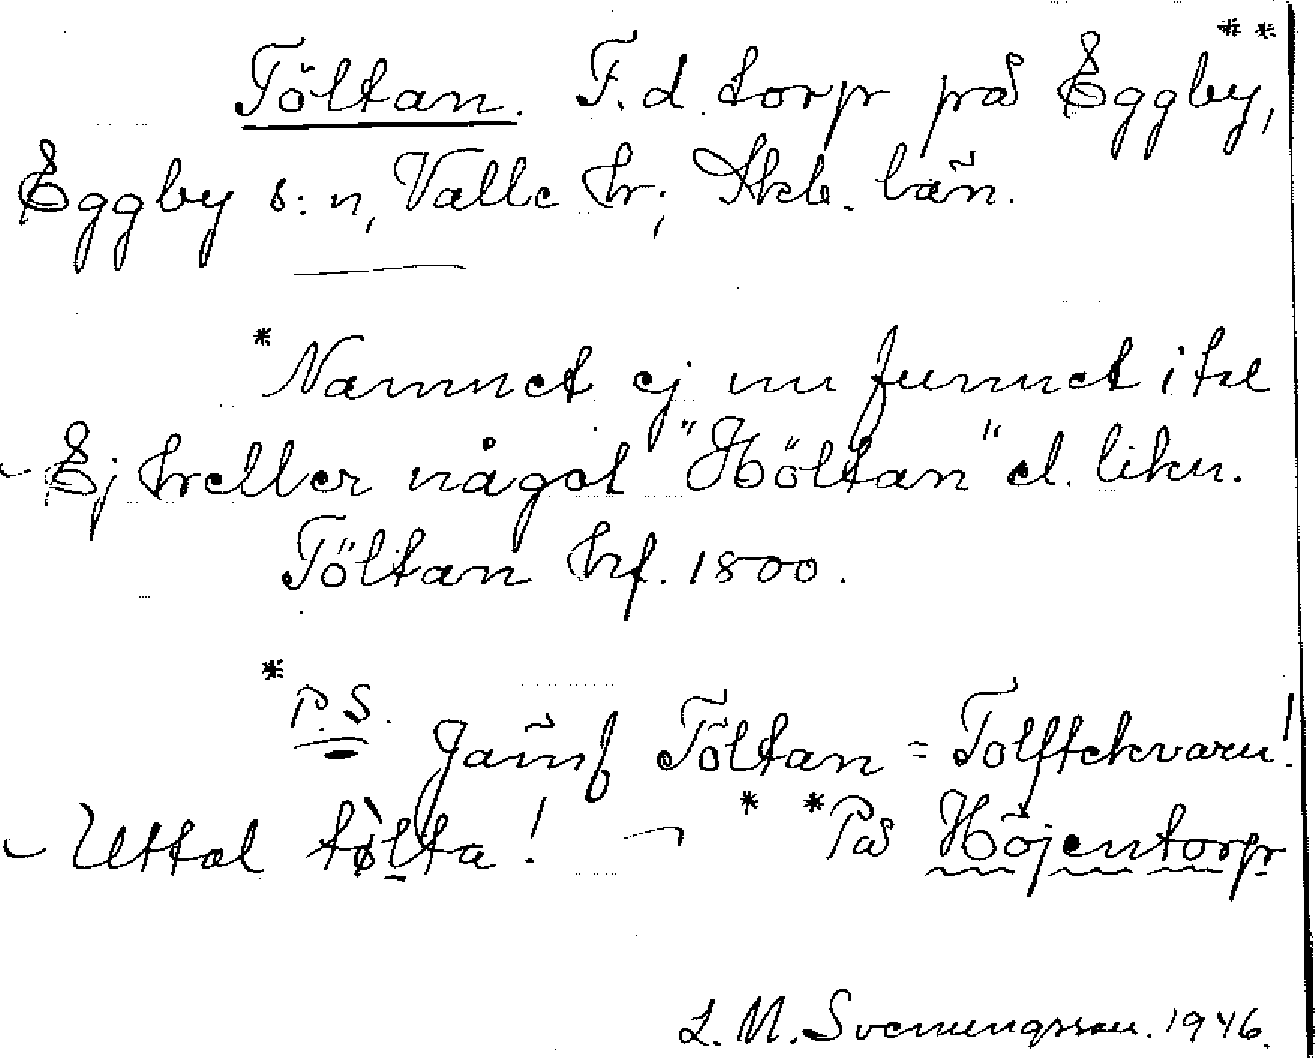 **
Töltan. F.d. torp på Eggby,
Eggby s:n, Valle hr; Skb. län.
* Namnet ej nu funnet i
Ej heller något "Höltan" el. likn.
Töltan hf. 1800.
* P.S. Jämf Töltan = Tolftekvarn!
Uttal tø̀lta! – ** På Höjentorp
L. M. Svenungsson. 1946.